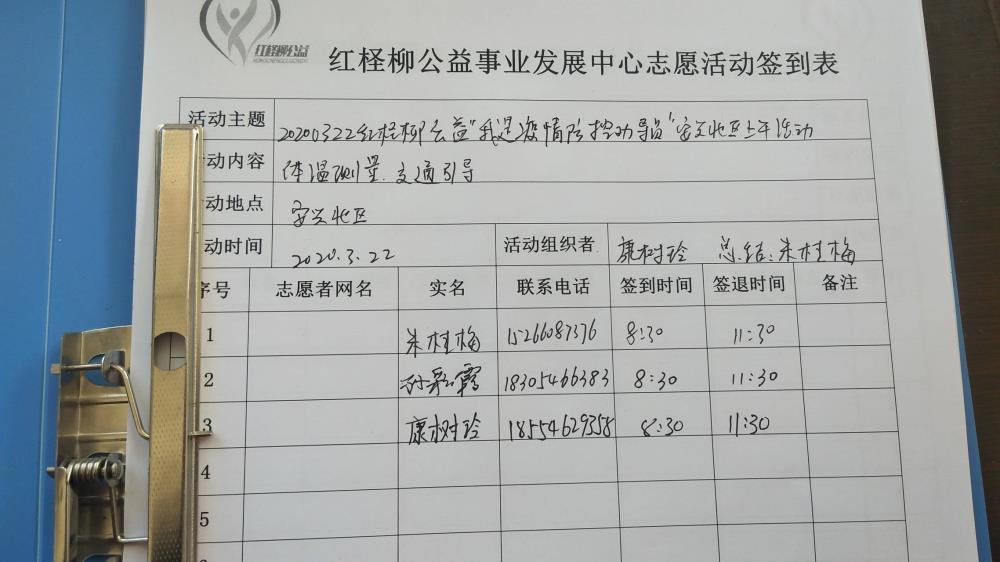 红柽柳公益
HONGCHENGLIUGONGYI
红柽柳公益事业发展中心志愿活动签到表
活动主题 20200322红柽柳公益"我是疫情防控劝导员"安兴北区上午活动
动内容 体温测量.交通引导
动地点 安兴北区
动时间 2020.3.22 活动组织者 康树玲 总结:朱桂梅
序号 志愿者网名 实名 联系电话 签到时间 签退时间 备注
1 朱桂梅 15266087376 8:30 11:30
2 孙彩霞 18305466383 8:30 11:30
3 康树玲 18554629358 8:30 11:30
4
5